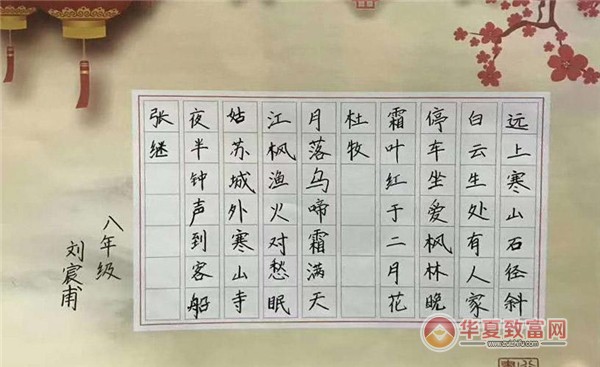 远上寒山石径斜
白云生处有人家
停车坐爱枫林晚
霜叶红于二月花
杜牧
月落乌啼霜满天
江枫渔火对愁眠
姑苏城外寒山寺
夜半钟声到客船
张继
八年级
刘宸甫
华夏致富网